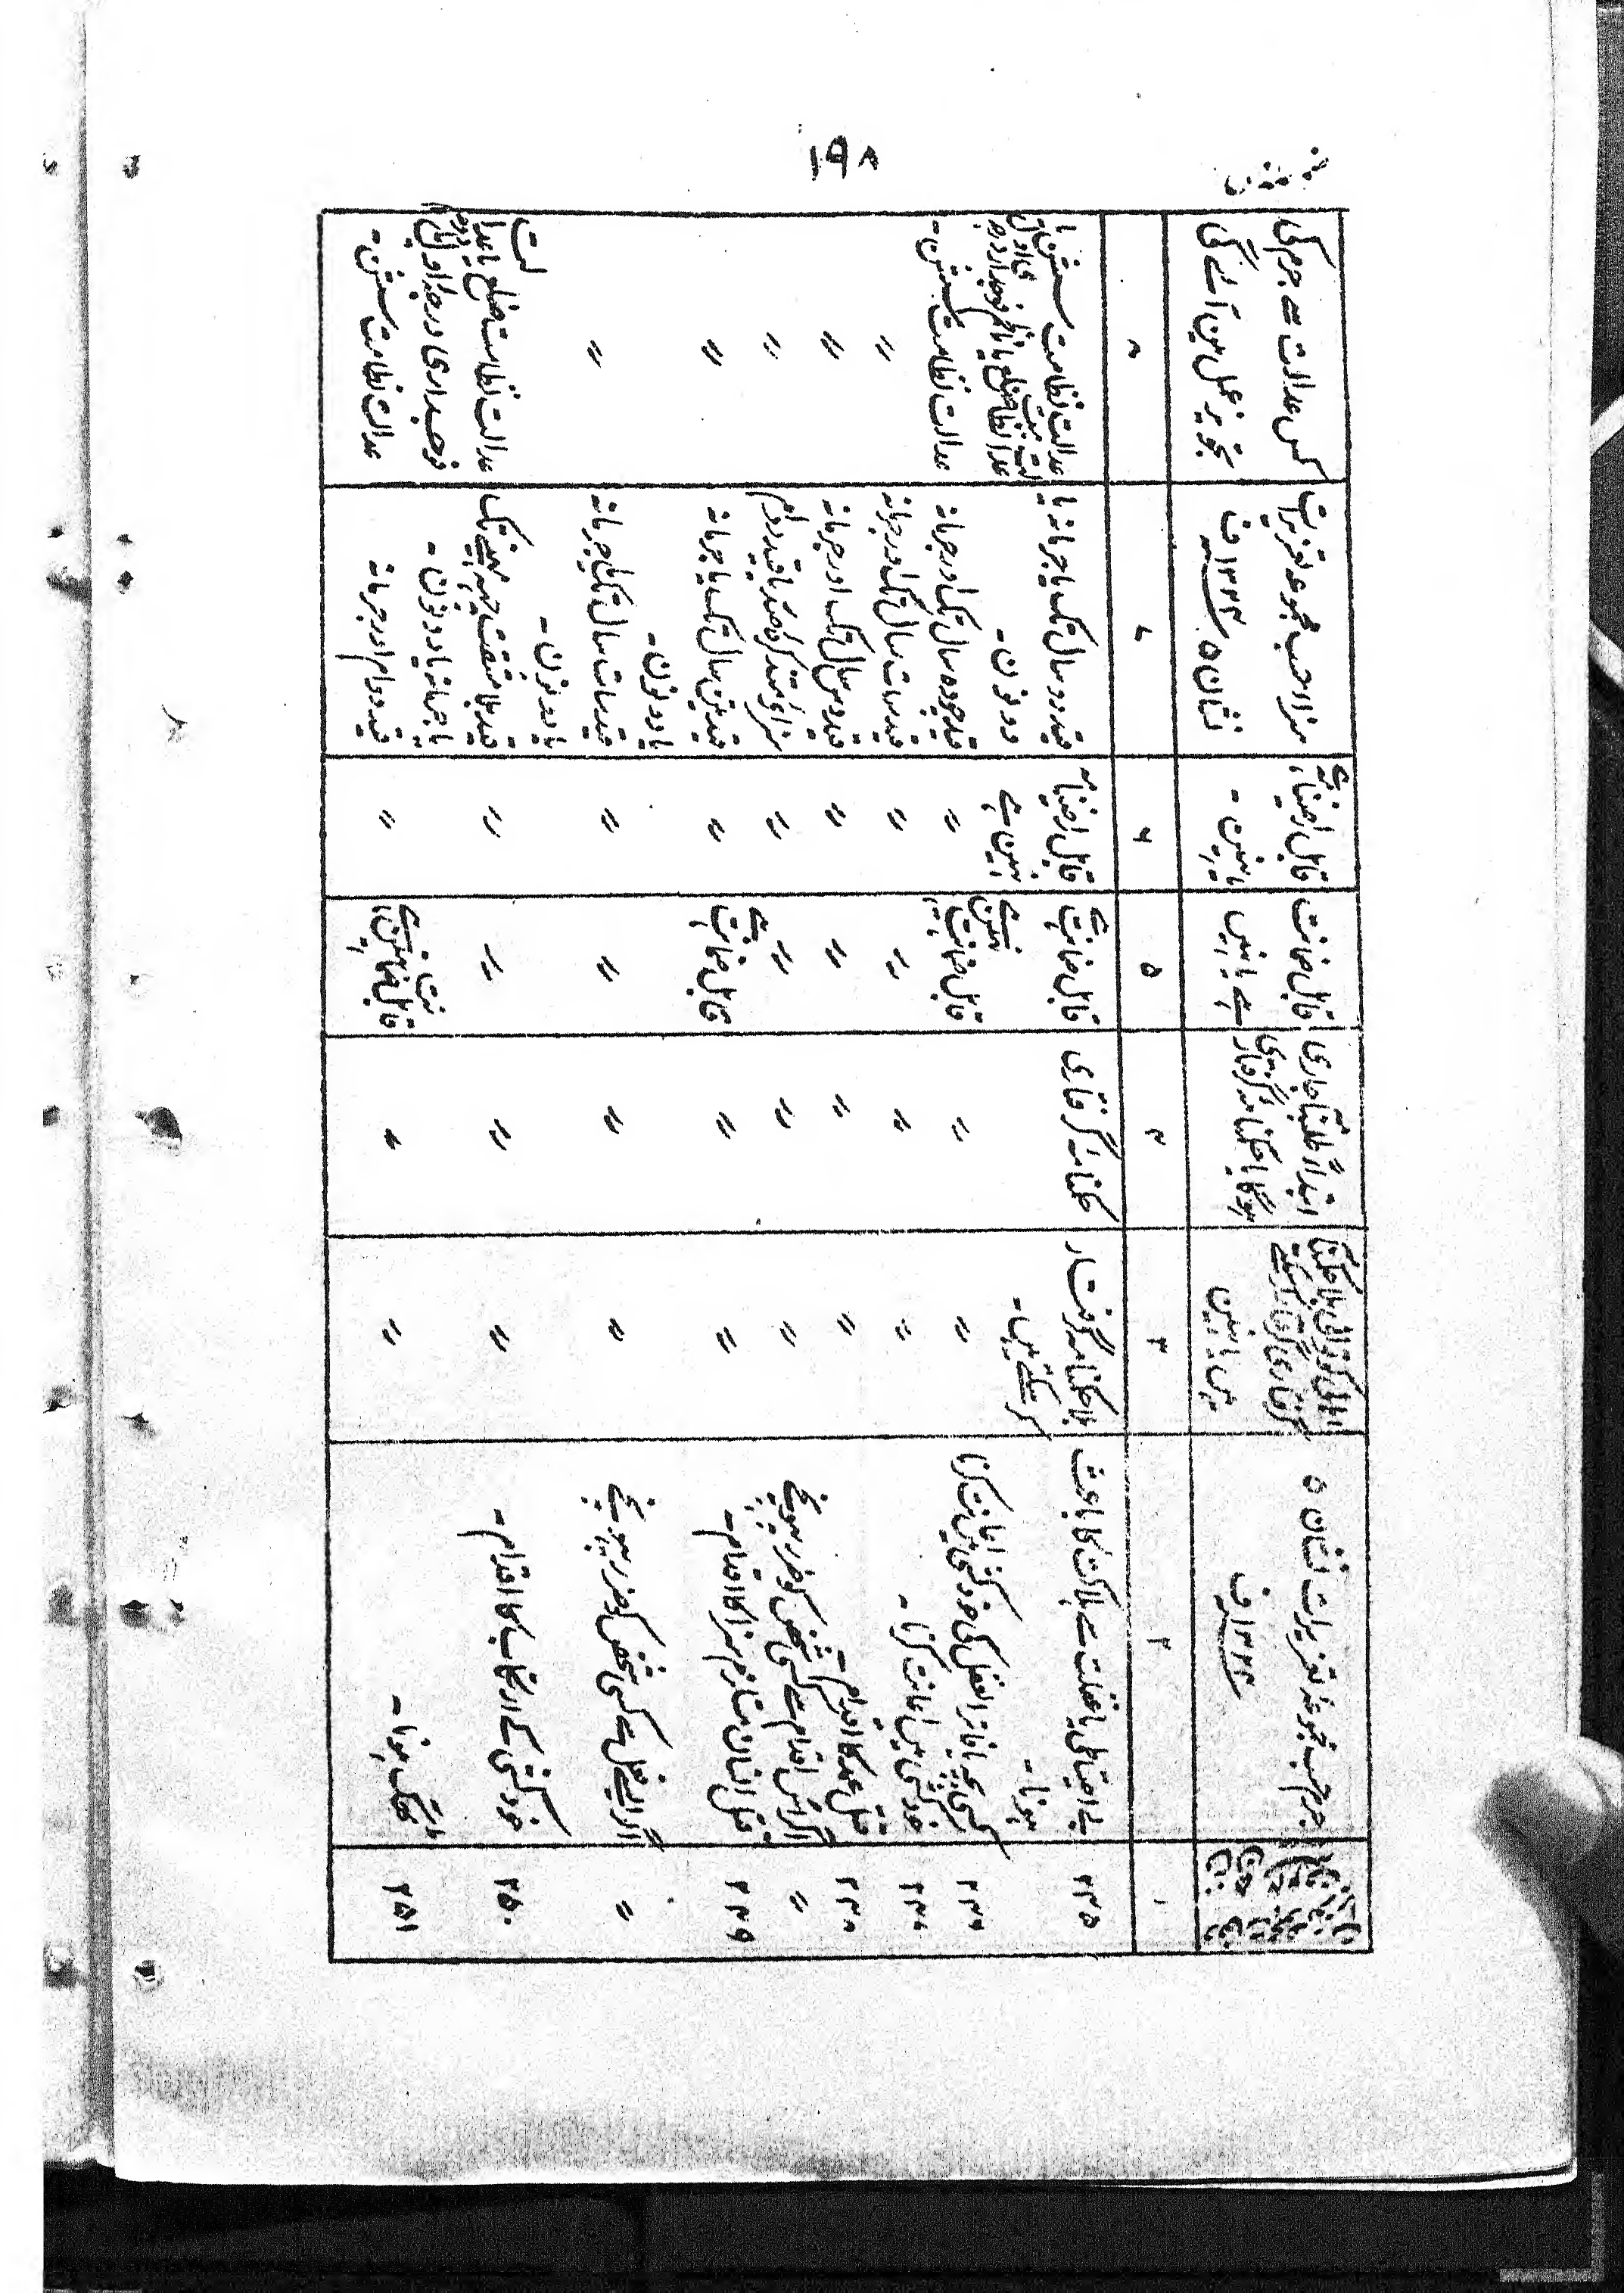 ۱۹۸
جرم حسب مجموعۂ تعزیرات نشان ۵
سنہ ۱۳۲۴ف
اہالی کوتوالی بلا حکمنامہ
گرفتاری گرفتار کرسکتے
ہیں یا نہیں
ابتداءً طلبنامہ جاری
ہوگا یا حکمنامہ گرفتاری
قابل ضمانت
ہے یا نہیں
قابل راضینامہ ہے
یا نہیں -
سزا حسب مجموعہ تعزیرات
نشان ۵ سنہ ۱۳۲۴ف
کس عدالت سے جرم کی
تجویز عمل میں آئے گی
۱ ۲ ۳ ۴ ۵ ۶ ۷ ۸
۲۴۵
بے احتیاطی یا غفلت سے ہلاکت کا باعث
ہونا -
بلا حکمنامہ گرفتار
کر سکتے ہیں -
حکمنامہ گرفتاری
قابل ضمانت ہے
قابل راضینامہ
نہیں ہے
قید دو سال تک یا جرمانہ یا
دونوں -
عدالت نظامت سشن یا
عدالت نظامت ضلع یا ناظم فوجداری درجہ اول
۲۴۶
کسی بچہ یا فاتر العقل کی خودکشی میں اعانت کرنا
〃
〃
قابل ضمانت نہیں ہے
〃
قید چودہ سال تک اور جرمانہ
عدالت نظامت سشن -
۲۴۷
خودکشی میں اعانت کرنا -
〃
〃
〃
〃
قید سات سال تک اور جرمانہ
〃
۲۴۸
قتل عمد کا اقدام -
〃
〃
〃
〃
قید دس سال تک اور جرمانہ
〃
〃
اگر اس اقدام سے کسی شخص کو ضرر پہونچے
〃
〃
〃
〃
سزائے متذکرہ صدر یا قید دوام
〃
۲۴۹
قتل انسان مستلزم سزا کا اقدام -
〃
〃
قابل ضمانت ہے
〃
قید تین سال تک یا جرمانہ
یا دونوں -
〃
〃
اگر ایسے فعل سے کسی شخص کو ضرر پہونچے
〃
〃
〃
〃
قید سات سال تک یا جرمانہ
یا دونوں -
〃
۲۵۰
خودکشی کے ارتکاب کا اقدام -
〃
〃
〃
〃
قید بلا مشقت چھ مہینے تک
یا جرمانہ یا دونوں -
عدالت نظامت ضلع یا عدالت
فوجداری درجہ اول یا دوم
۲۵۱
ٹھگ ہونا -
〃
〃
قابل ضمانت نہیں ہے
〃
قید دوام اور جرمانہ
عدالت نظامت سشن -